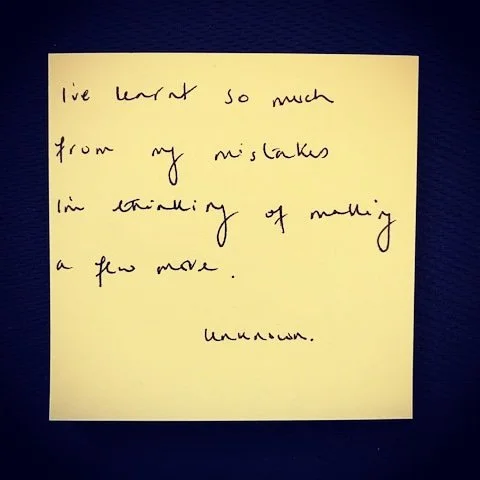 I've learnt so much
from my mistakes
I'm thinking of making
a few more.
unknown.